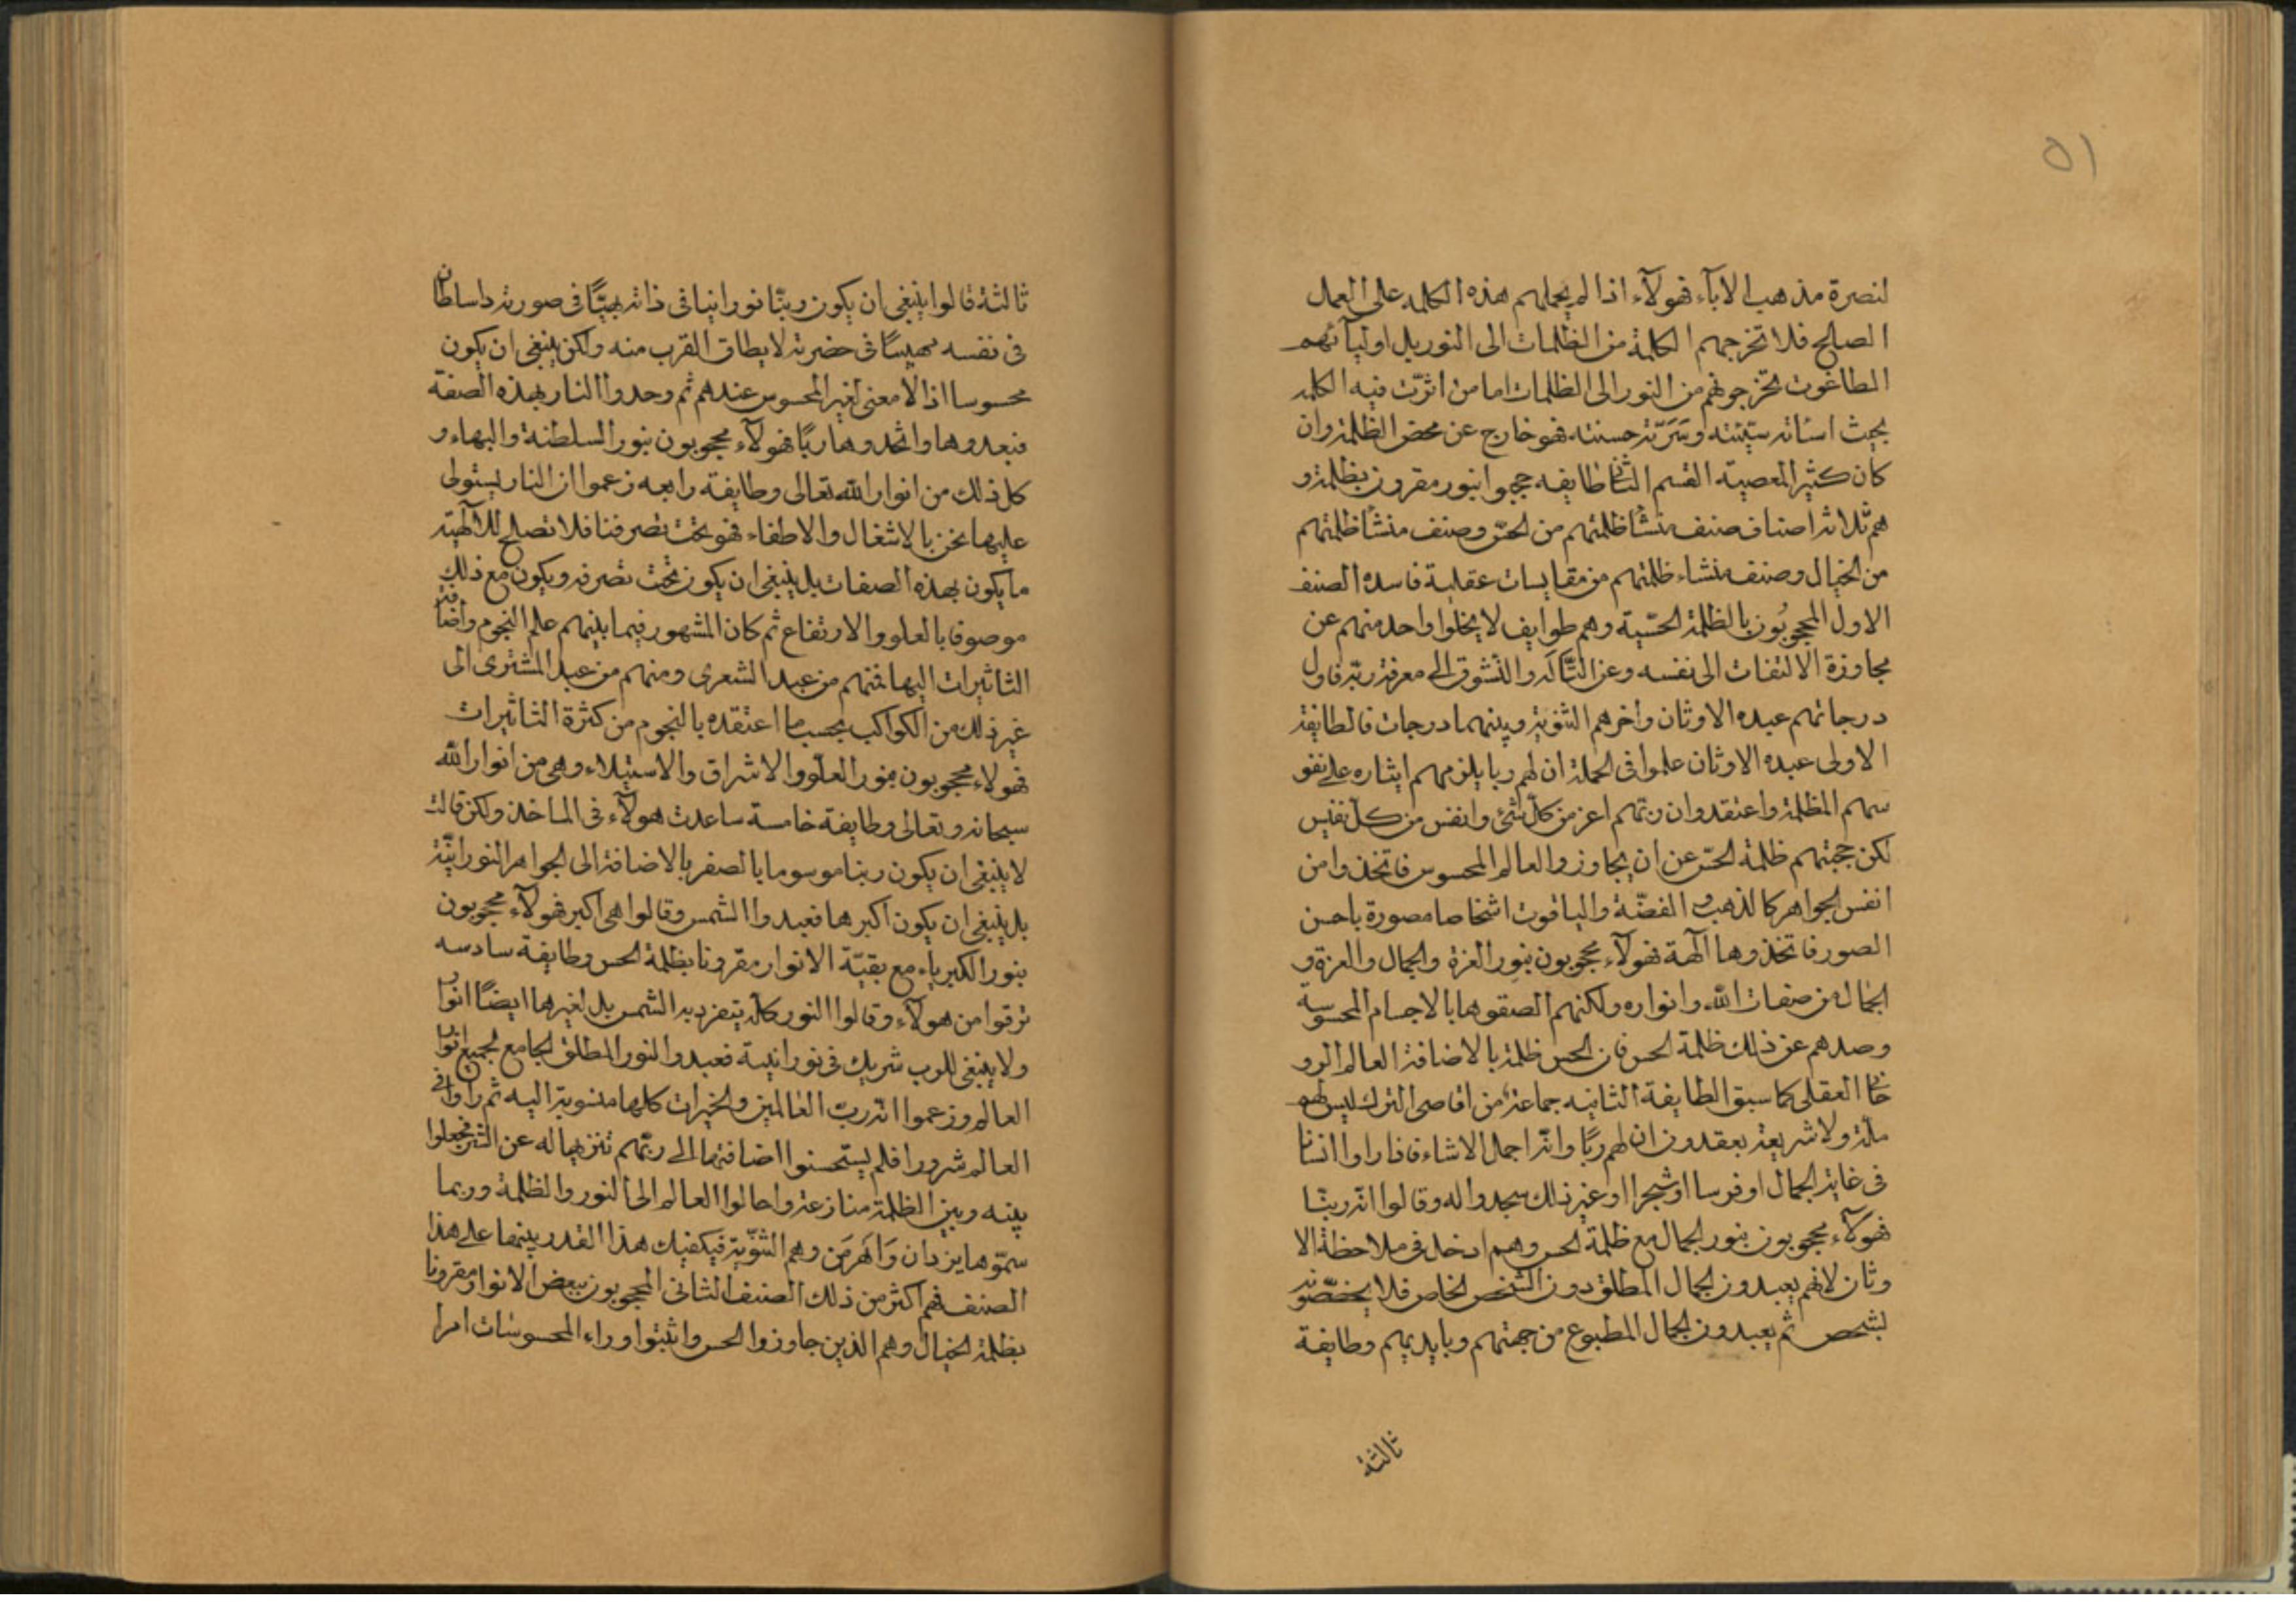 ٥١
لنصرة مذهب الاباۤء فهولآء اذا لم يحملهم هذه الكلمه على العمل
الصالح فلا تخرجهم الكلمة من الظلمات الى النور بل اوليآئهم
الطاغوت تخرجونهم من النور الى الظلمات اما من اثرّت فيه الكلمه
بحيث اسئاته سيّئته وسَرّته حسنته فهو خارج عن محض الظلمة وان
كان كثير المعصيته القسم الثانى طايفه حجبوا بنور مقرون بظلمة و
هم ثلاثة اصناف صنف منشأ ظلمتهم من الحسّ وصنف منشأ ظلمتهم
من الخيال وصنف منشاء ظلمتهم من مقايسات عقلية فاسده الصنف
الاول المحجوبُون بالظلمة الحسّية وهم طوايف لا يخلوا واحد منهم عن
مجاوزة الالتفات الى نفسه وعن التّألّه والتشوق الى معرفة ربّه فاول
درجاتهم عبده الاوثان وآخرهم الثنويّة وبينهما درجات فالطايفة
الاولى عبده الاوثان علموا فى الجملة ان لهم ربا يلزمهم ايثاره على نفو
سهم المظلمة واعتقدوان ربّهم اعز من كلّ شئ وانفس من كلّ نفيس
لكن حجبتهم ظلمة الحسّ عن ان يجاوزوا العالم المحسوس فاتخذوا من
انفس الجواهر كالذهب و الفضّة والياقوت اشخاصا مصورة باحسن
الصور فاتخذوها آلهة فهولآء محجوبون بنور العزة والجمال والعزة و
الجمال من صفات الله وانواره ولكنهم الصقوها بالاجسام المحسوسة
وصدهم عن ذلك ظلمة الحس فان الحس ظلمة بالاضافة العالم الرو
حانى العقلى كما سبق الطايفة الثانيه جماعة من اقاصى الترك ليس لهم
ملّة ولا شريعة يعقدون ان لهم ربًا وانّه اجمل الاشاء فاذا راوا انسانا
فى غاية الجمال اوفرسا اوشجرا اوغير ذلك سجدوا له وقالوا انّه ربنّا
فهولآء محجوبون بنور الجمال مع ظلمة الحس وهم ادخل فى ملاحظة الا
وثان لانهم يعبدون الجمال المطلق دون الشخص الخاص فلا يخصّصونه
بشخص ثم يعبدون الجمال المطبوع من جهتهم وبايديهم وطايفة
ثالثة
ثالثة قالوا ينبغى ان يكون ربنّا نورانيا فى ذاته بهيّا فى صورته ذاسلطان
فى نفسه مهيبًا فى حضرته لا يطاق القرب منه ولكن ينبغى ان يكون
محسوسا اذ لا معنى لغير المحسوس عندهم ثم وحدوا النار بهذه الصفة
فعبدوها واتخذوها ربًا فهولآء محجوبون بنور السلطنة والبهاء و
كل ذلك من انوار الله تعالى وطايفة رابعه زعموا ان النار يستولى
عليها نحن بالاشغال والاطفاء فهو تحت تصرفنا فلا تصلح للالٓهيّة
ما يكون بهذه الصفات بل ينبغى ان يكون تحت تصرفه ويكون مع ذلك
موصوفا بالعلو والارتفاع ثم كان المشهور فيما بينهم علم النجوم واضافة
الثاثيرات اليها فمنهم من عبد الشعرى ومنهم من عبد المشترى الى
غير ذلك من الكواكب بحسب ما اعتقده بالنجوم من كثرة الثاثيرات
فهولاء محجوبون بنور العلّو والاشراق والاستيلاء وهى من انوار الله
سبحانه وتعالى وطايفة خامسة ساعدت هولآء فى الماخذ ولكن قالت
لا ينبغى ان يكون ربنا موسوما بالصغر بالاضافة الى الجواهر النورانيّة
بل ينبغى ان يكون اكبرها فعبدوا الشمس وقالوا هى اكبر فهولآء محجوبون
بنور الكبرياء مع بقيّة الانوار مقرونا بظلمة الحس وطايفة سادسه
ترقوا من هولآء وقالوا النور كلّه يتفرد به الشمس بل لغيرها ايضًا انوار
ولا ينبغى للرب شريك فى نورانيية فعبدوا النور المطلق الجامع لجميع انوار
العالم وزعموا انّه ربّ العالمين والخيرات كلها منسوبة اليه ثم راوا فى
العالم شرورا فلم يستحسنوا اضافتها الى ربّهم تنزيها له عن الشر فجعلوا
بينه وبين الظلمة منازعة واحالوا العالم الى النور والظلمة وربما
سمّوها يزدان وَاَهْرِمَن وهم الثنّويّة فيكفيك هذا القدر بينها على هذا
الصنف فهم اكثر من ذلك الصنف الثانى المحجوبون ببعض الانوار مقرونا
بظلمة الخيال وهم الذين جاوزوا الحس واثبتوا وراء المحسوسات امرا